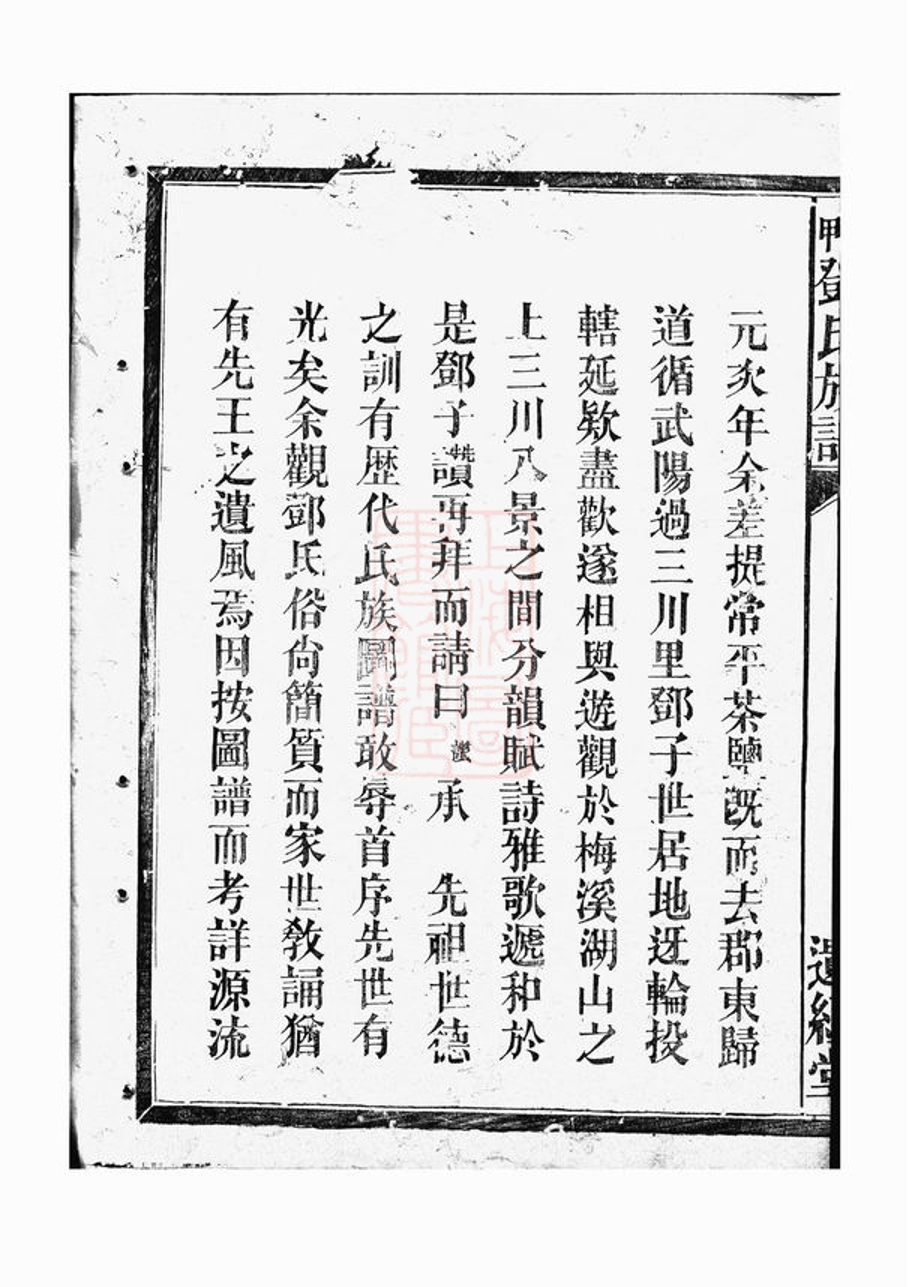 鄧氏族譜
遺經堂
元次年余差提常平茶鹽既而去郡東歸
道循武陽過三川里鄧子世居地迓輪投
轄延欵盡歡遂相與遊觀於梅溪湖山之
上三川八景之間分韻賦詩雅歌遞和於
是鄧子再拜而請曰 承 先祖世德
之訓有歷代氏族圖譜敢辱首序先世有
光矣余觀鄧氏俗尙簡質而家世敎誦猶
有先王之遺風焉因按圖譜而考詳源流